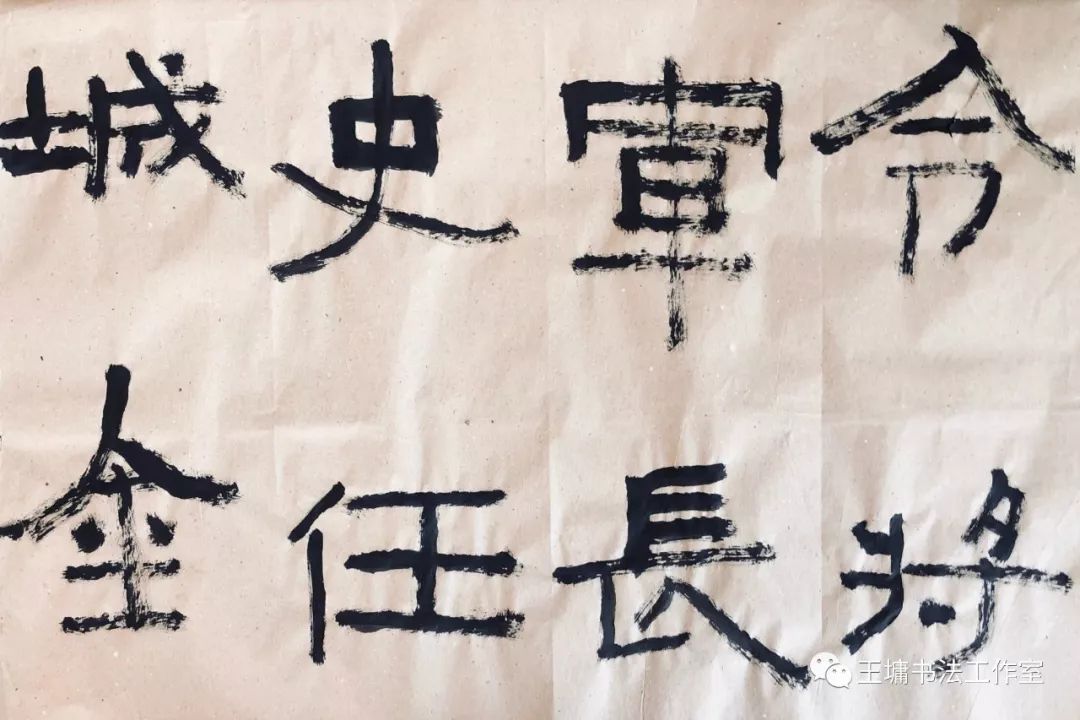 令将
軍長
史任
城金
王墉书法工作室